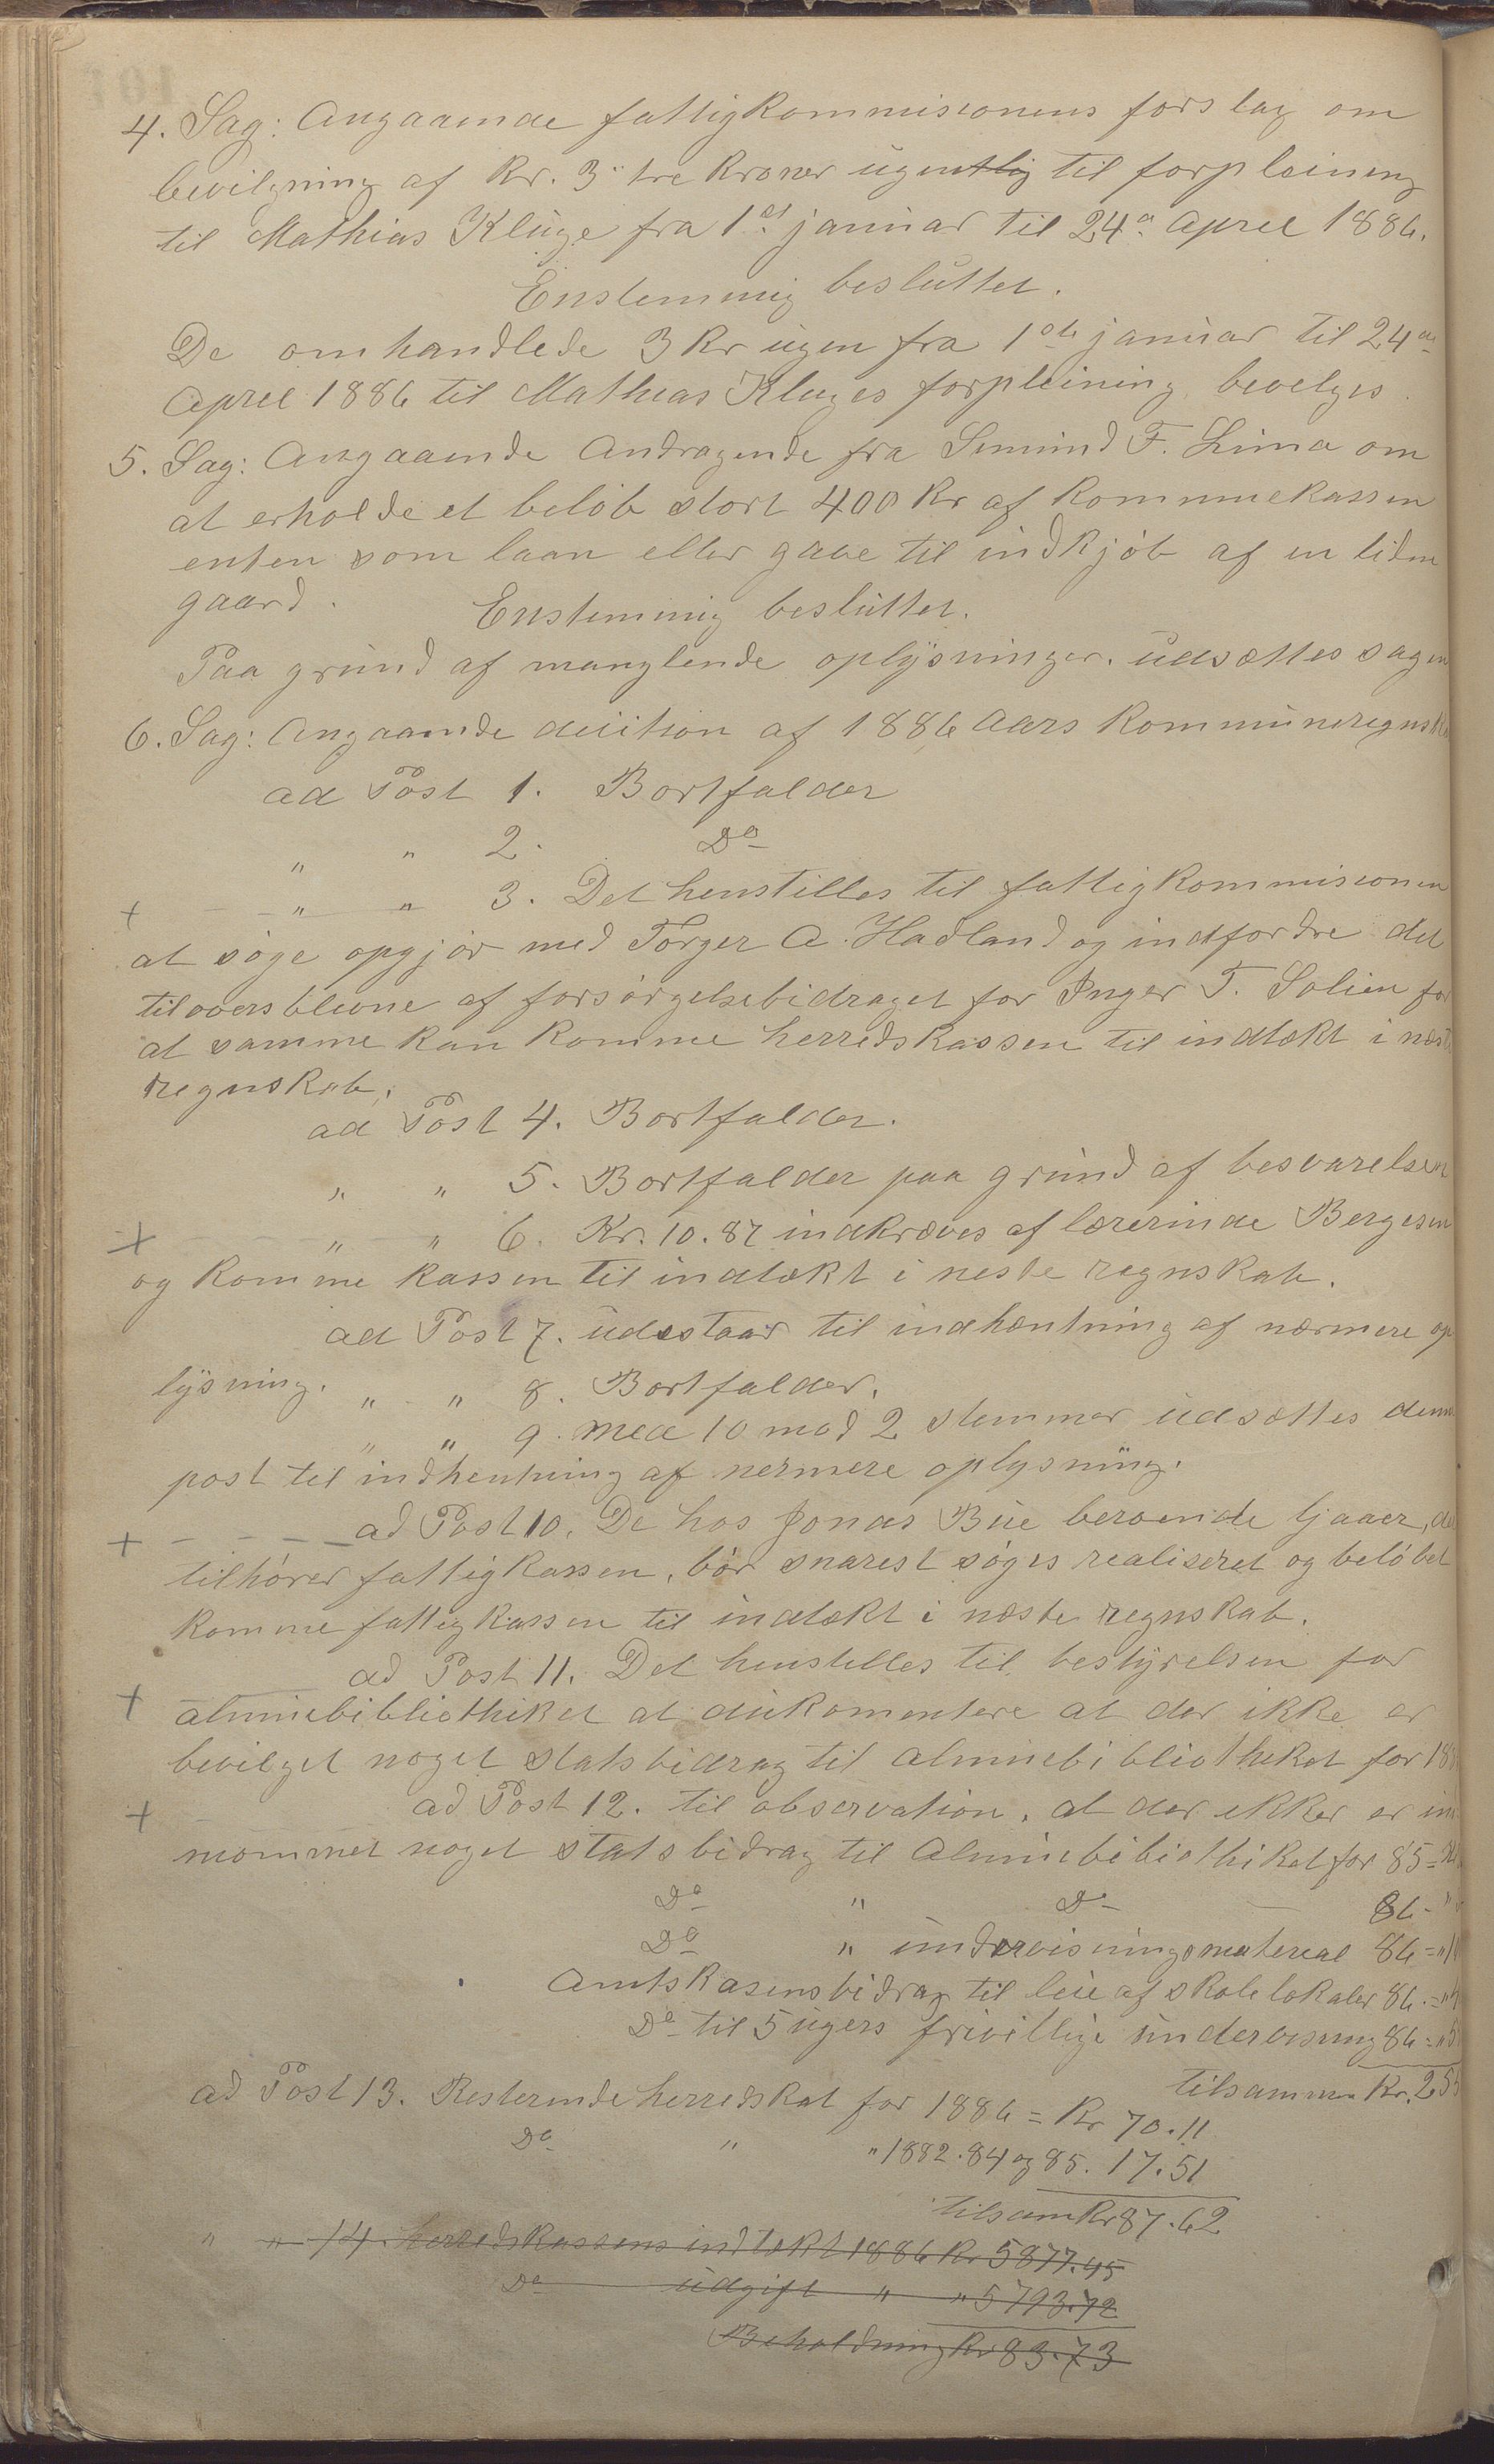 4. Sag: Angaaende fattigkommisionens forslag om
bevilgning af Kr. 3 tre kroner ugentlig til forpleining
til Mathias Kluge fra 1st januar til 24a April 1886.
Enstemmig besluttet.
De omhandlede 3 kr ugen fra 1ste januar til 24de
April 1886 til Mathias Kluges forpleining bevelges.
5. Sag: Angaaende Andragende fra Semund F. Lima om
at erholde et beløb stort 400 kr af kommunekassen
enten som laan eller gave til indkjøb af en liden
gaard. Enstemmig besluttet.
Paa grund af manglende oplysninger. udsættes sagen
6. Sag: Angaaende decition af 1886 aars kommuneregnsk
ad Post 1. Bortfalder
" " 2. Do
+ " " 3. Det henstilles til fattigkommisionen
at søge opgjør med Torger A. Hadland og indfordre det
tiloversblevne af forsørgelsebidraget for Inger T. Solien for
at samme kan komme herredskassen til indtækt i næste
regnskab.
ad Post 4. Bortfalder.
" " 5. Bortfalder paa grund af besvarelsen
+ " " 6. Kr. 10.87 indkræves af lærerinde Bergesen
og komme kassen til indtækt i neste regnskab.
ad Post 7. udestaar til indhæntning af nærmere op
lysning. " " 8. Bortfalder.
" " 9. med 10 mod 2 stemmer udsættes denne
post til indhentning af nermere oplysning.
+ ad Post 10. De hos Jonas Bue beroende ljaaer, der
tilhører fattigkassen, bør snarest søges realiseret og beløbet
komme fattigkassen til indtækt i næste regnskab.
ad Post 11. Det henstelles til bestyrelsen for
+ almuebibliothiket at dukomentere at der ikke er
bevilget noget statsbidrag til almuebibliotheket for 18
+ ad Post 12. til observation, at der ikker er in
mommet noget statsbidrag til Almuebibiothiket for 85 =
Do " Do 86 - "
Do " undervisningsmaterial 86 = "
Amtskasens bidrag til leie af skolelokaler 86. = "
Do til 5 ugers frivillige undervisning 86 = "
tilsammen Kr. 25
ad Post 13. Resterende herredskat for 1886 = Kr 70.11
Do " " 1882. 84 og 85. 17.51
tilsam Kr 87.62
" " 14. herredskassens indtækt 1886 Kr 5877.45
Do udgift " " 5793.72
Beholdning Kr 83.73